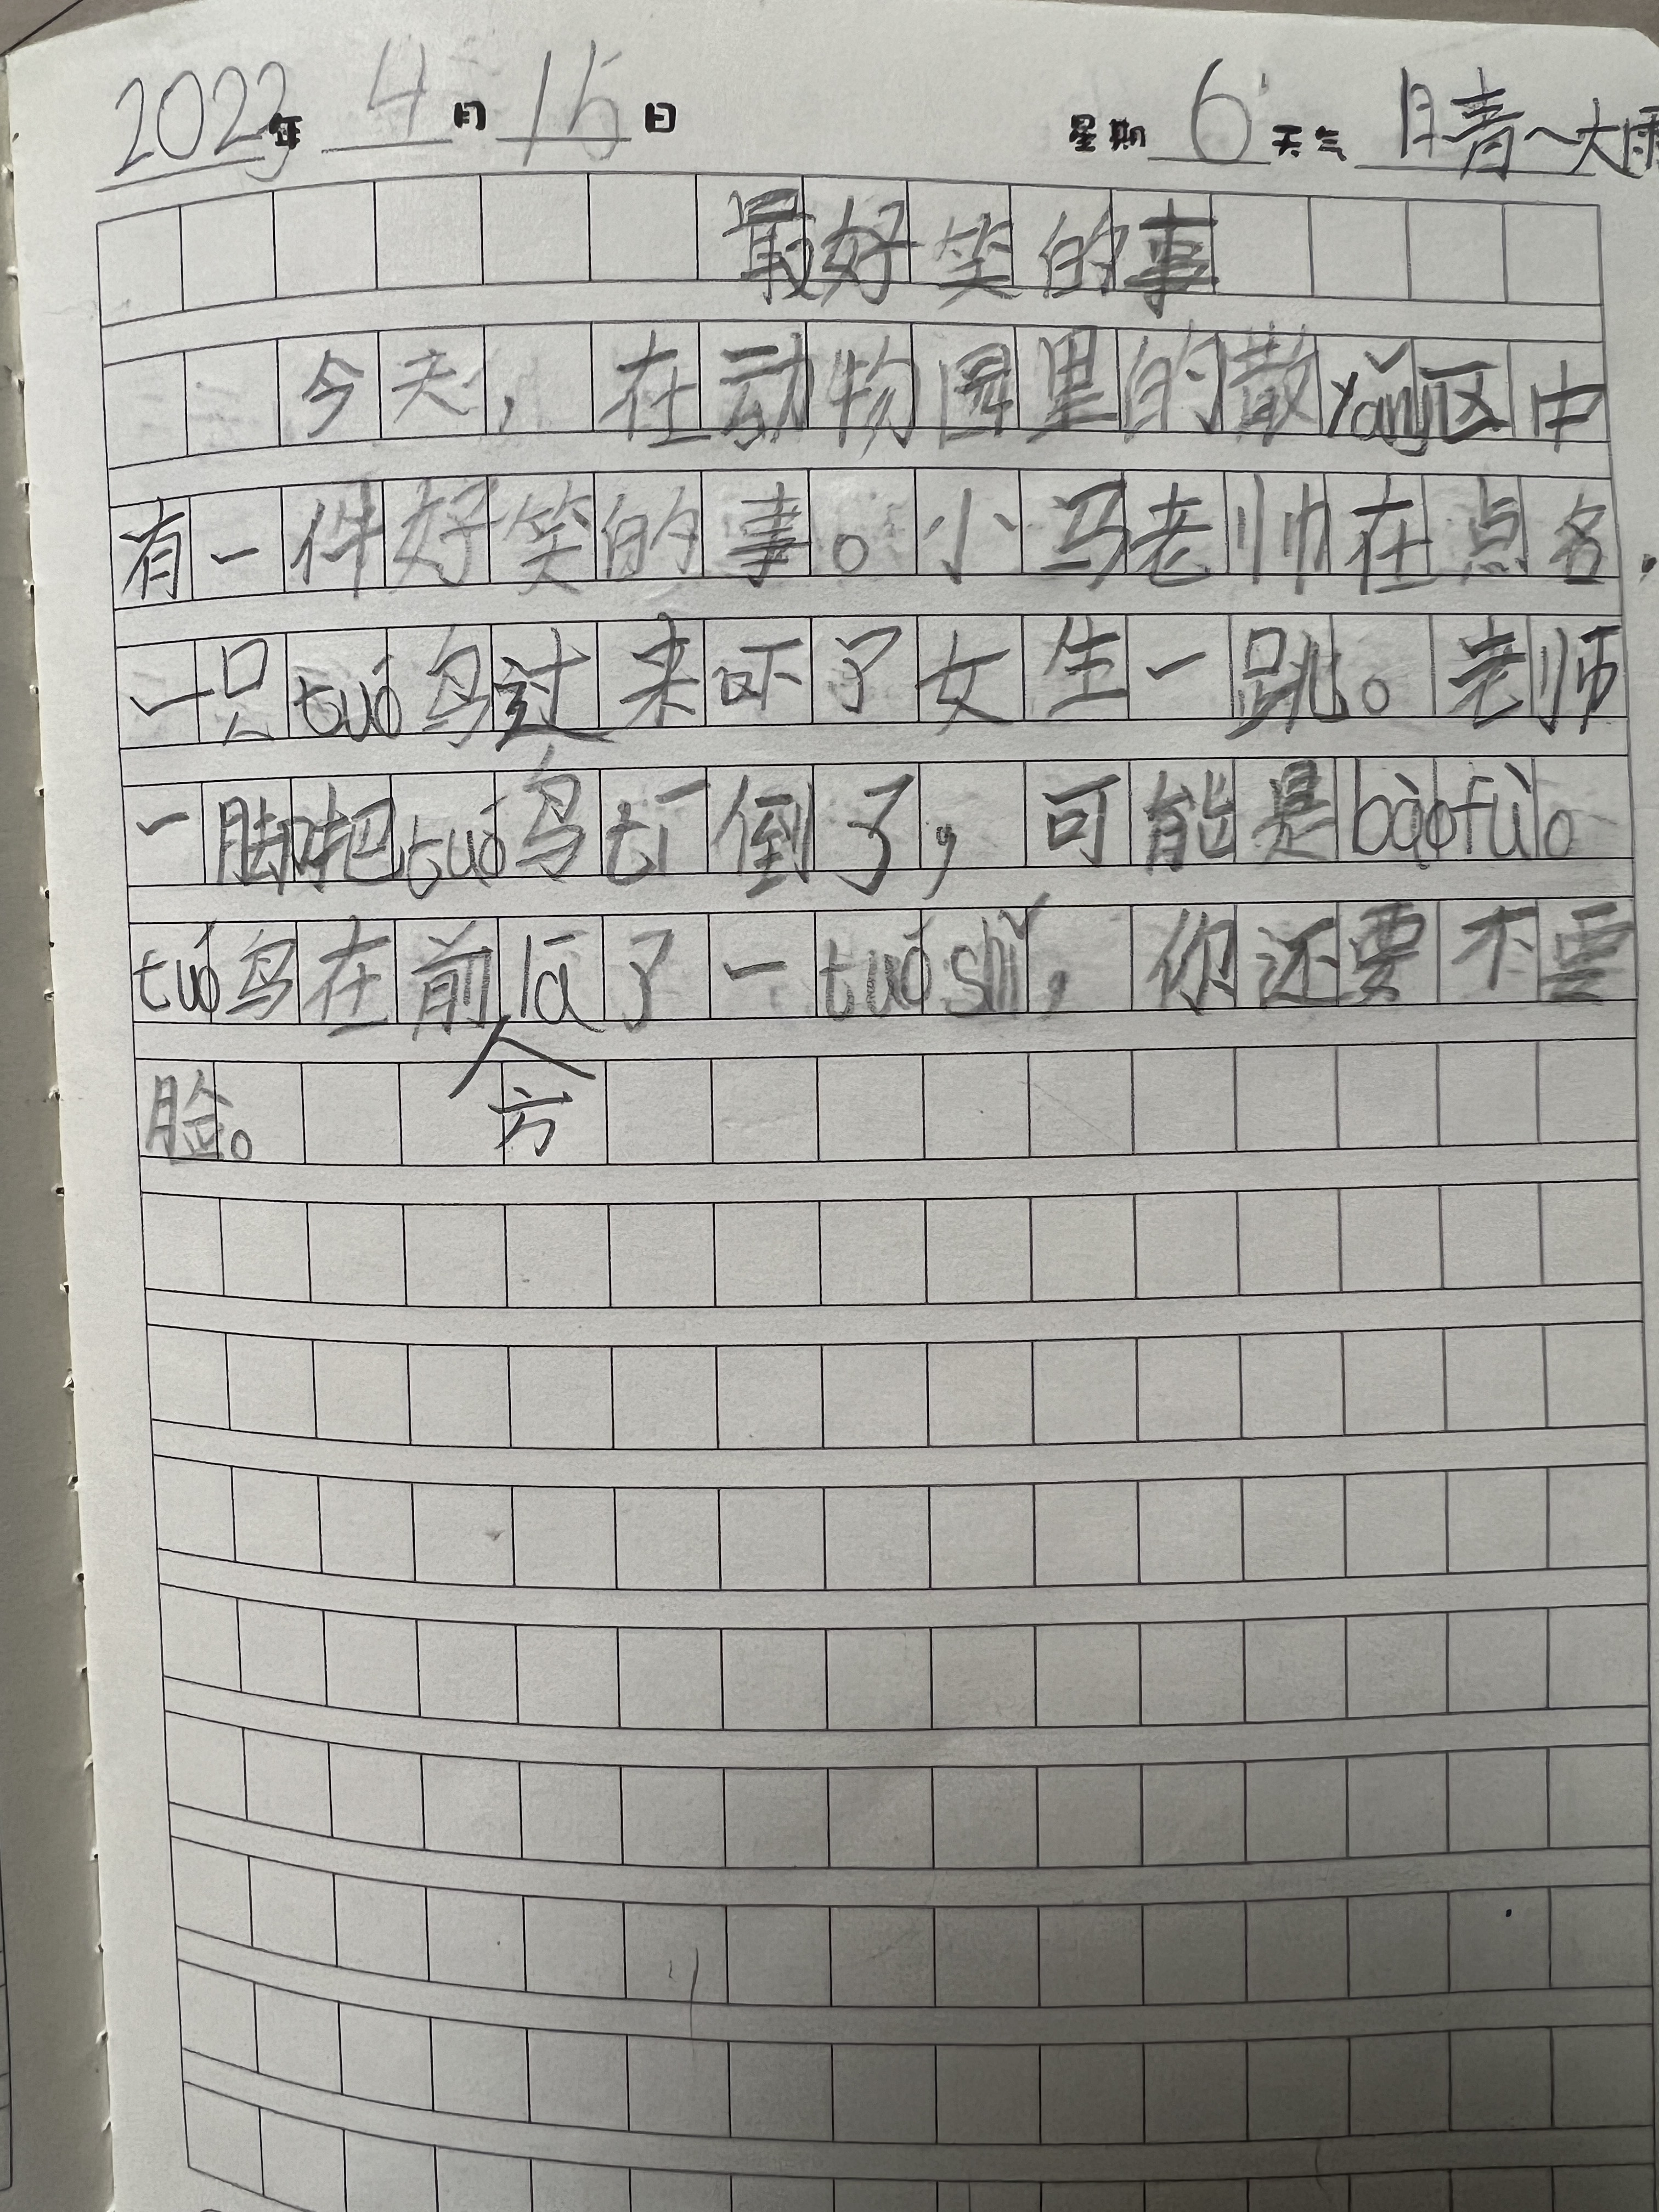 2023年 4月 15日 星期 6 天气 晴~大雨
最好笑的事
今天，在动物园里的散yǎng区中
有一件好笑的事。小马老帅在点名，
一只tuó鸟过来吓了女生一跳。老师
一脚把tuó鸟tī倒了，可能是bàofù。
tuó鸟在前lā了一tuóshǐ，你还要不要
方
脸。